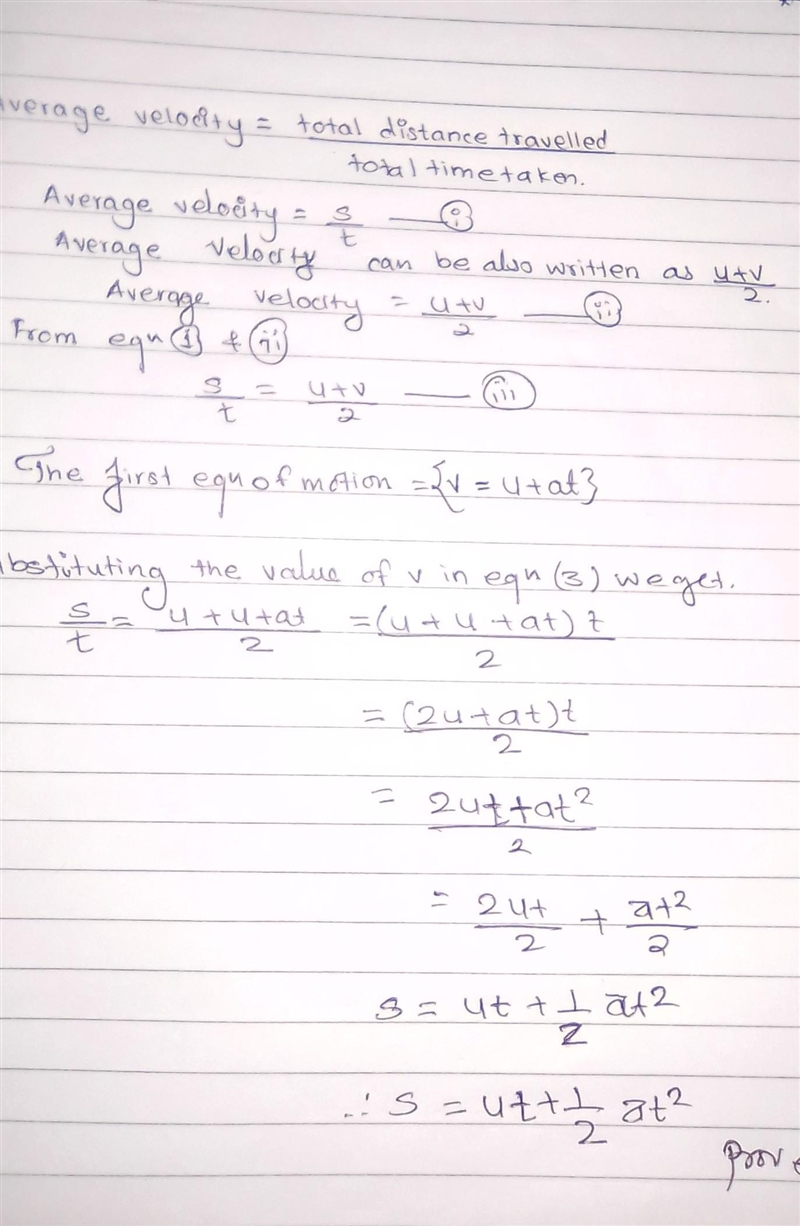 Average velocity = total distance travelled
total time taken.
Average velocity = s/t — (i)
Average velocity can be also written as u+v/2.
Average velocity = u+v/2 — (ii)
From eqn (1) & (ii)
s/t = u+v/2 — (iii)
The first eqn of motion = {v = u + at}
bstituting the value of v in eqn (3) we get.
s/t = u + u + at/2 = (u + u + at) t/2
= (2u + at)t/2
= 2ut + at²/2
= 2ut/2 + at²/2
s = ut + 1/2 at²
∴ s = ut + 1/2 at²
Prove